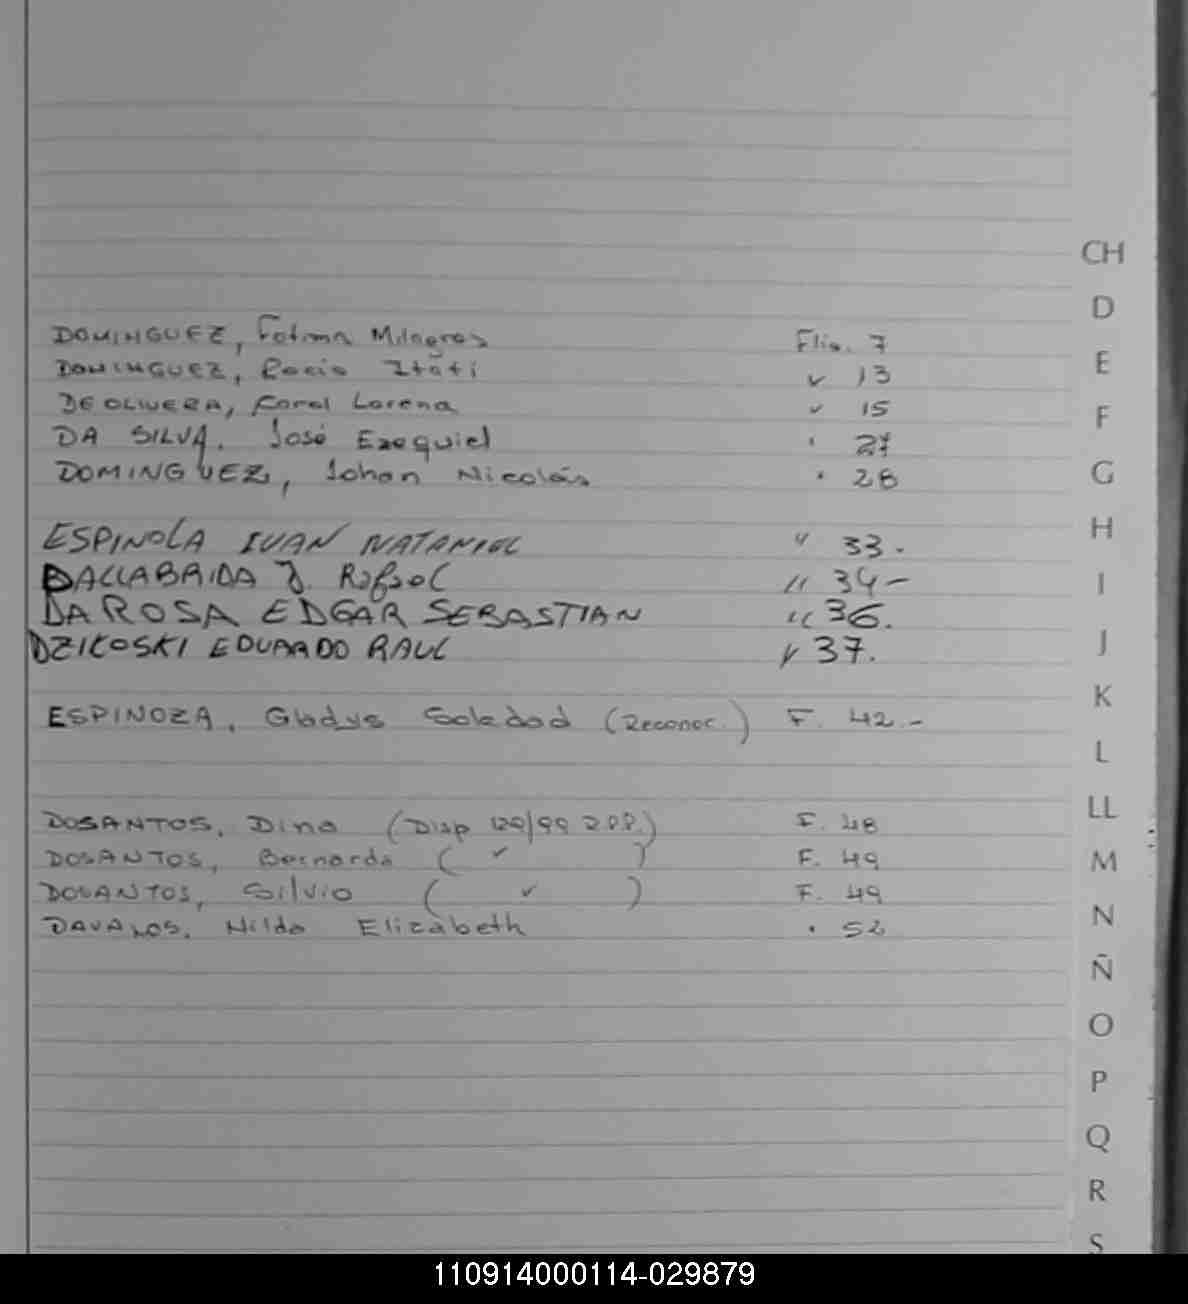 CH
D
DOMINGUEZ, Fatima Milagros Flio. 7
E
DOMINGUEZ, Rocio Itatí " 13
DE OLIVERA, Karol Lorena " 15
F
DA SILVA, José Ezequiel " 27
DOMINGUEZ, Johan Nicolás " 28
G
H
ESPINOLA IVAN NATANIEL " 33.-
DALLABRIDA J. Rafael " 34-
I
DA ROSA EDGAR SEBASTIAN " 36.
J
DZIKOSKI EDUARDO RAUL " 37.
K
ESPINOZA, Gladys Soledad (Reconoc.) F. 42.-
L
LL
DOSANTOS, Dina (Disp 129/99 R.P.P.) F. 48
DOSANTOS, Bernarda ( " ) F. 49
M
DOSANTOS, Silvio ( " ) F. 49
N
DAVALOS, Nilda Elizabeth " 52
Ñ
O
P
Q
R
S
110914000114-029879